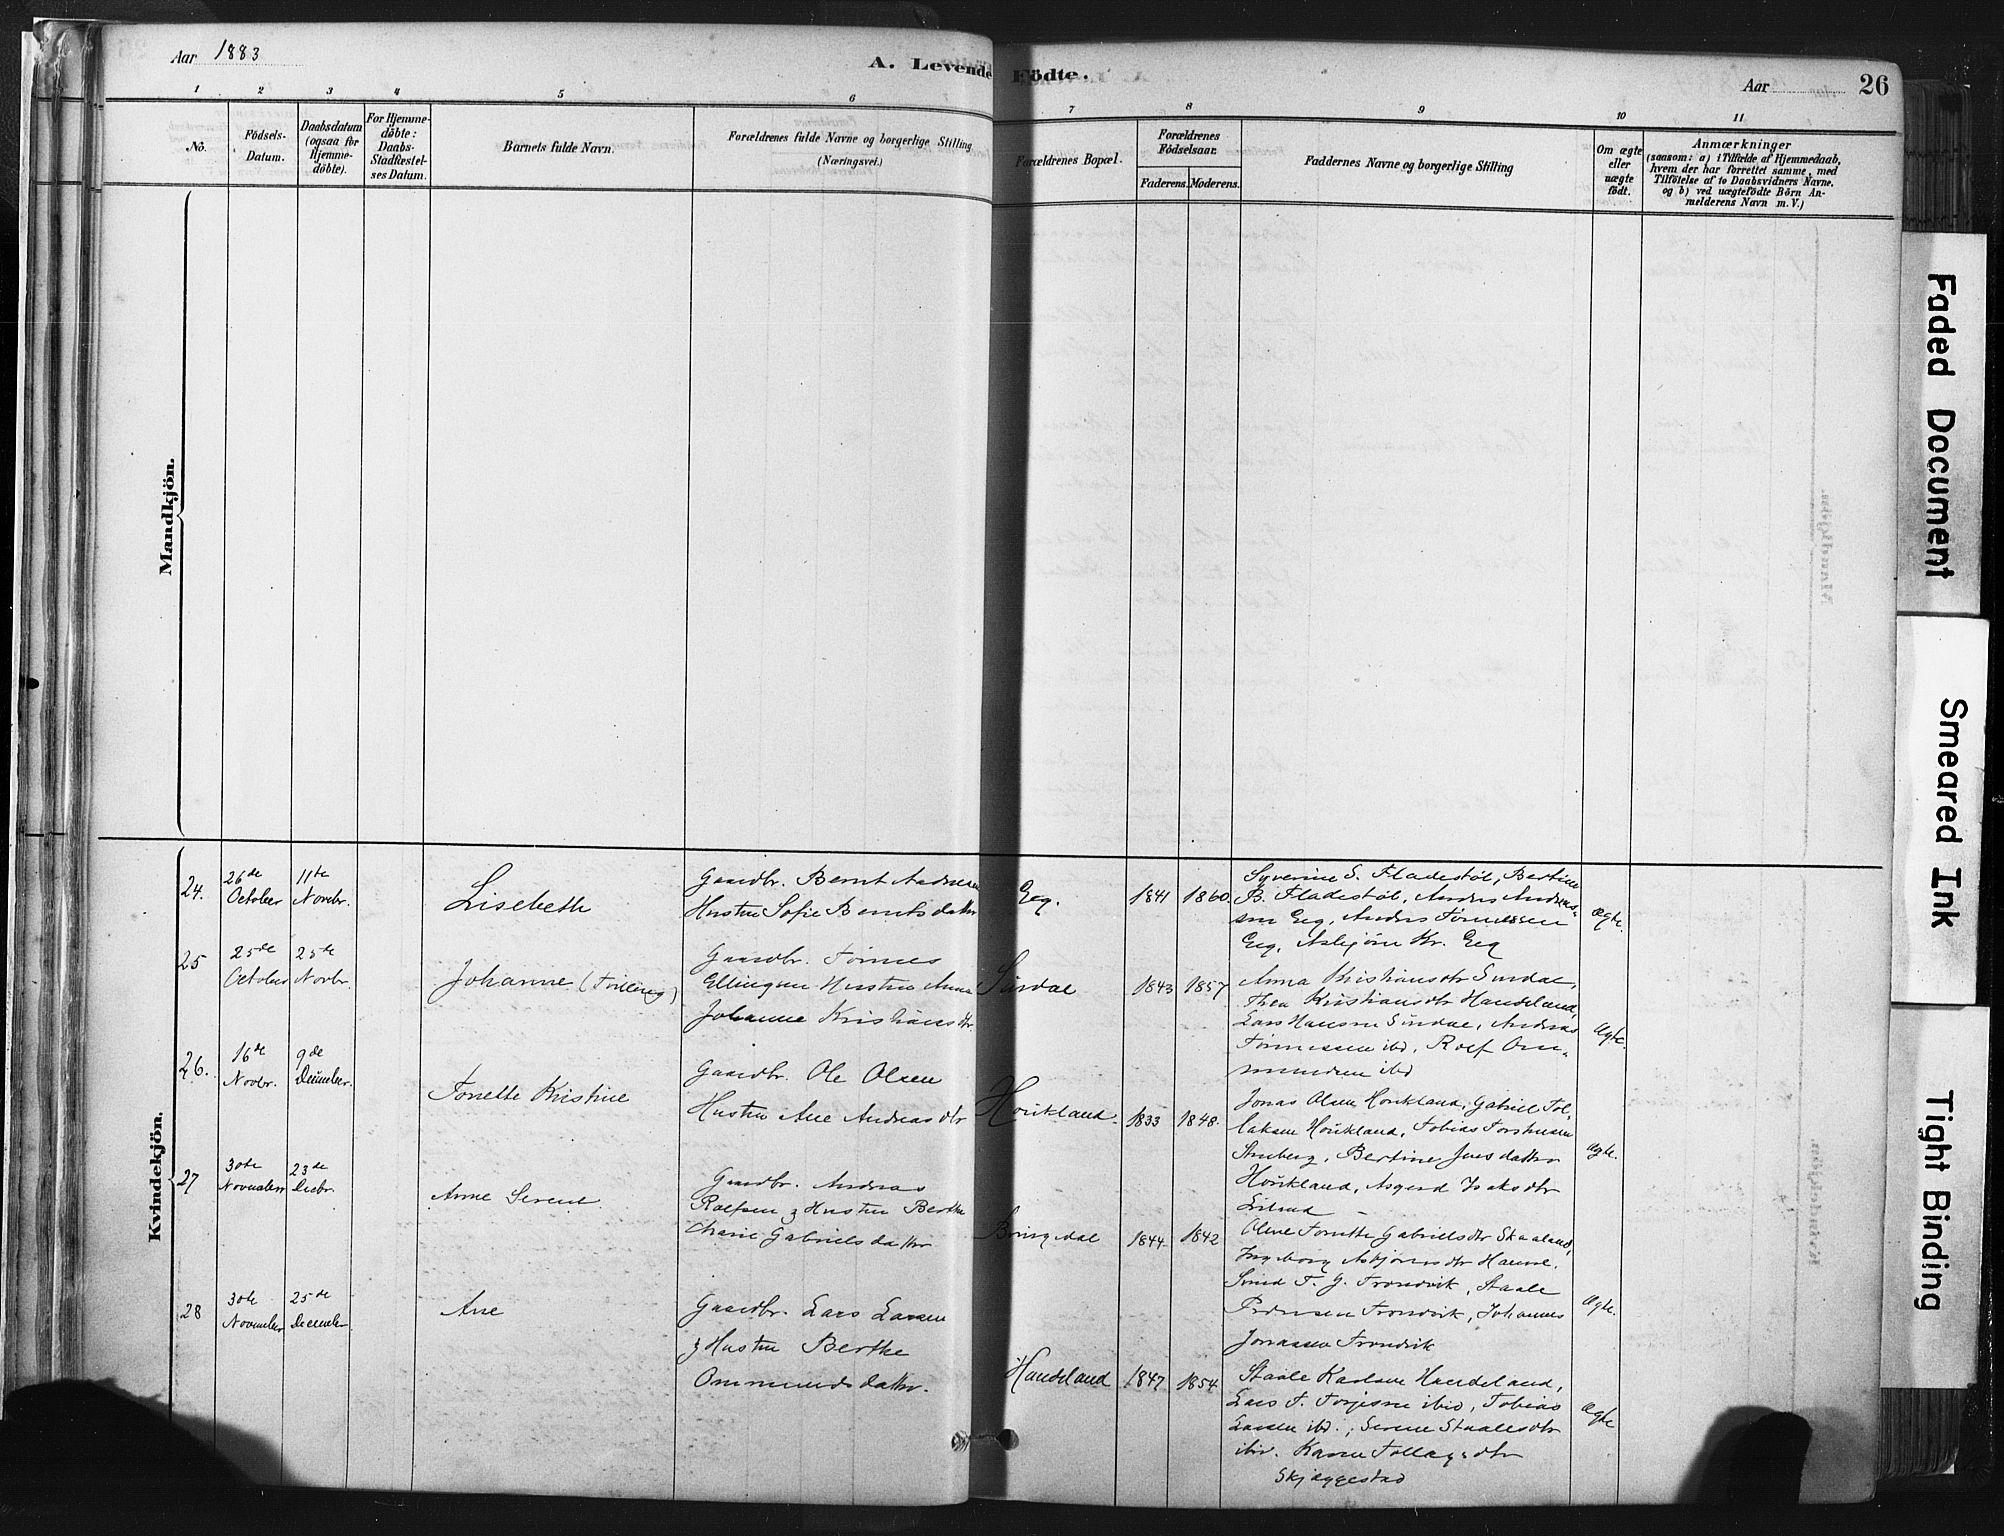 Aar 1883
A. Levende Födte.
Aar
26
1 2 3 4 5 6 7 8 9 10 11
No.
Födsels-
Datum.
Daabsdatum
(ogsaa for
Hjemme-
döbte).
For Hjemme-
döbte:
Daabs-
Stadfæstel-
ses Datum.
Barnets fulde Navn.
Forældrenes fulde Navne og borgerlige Stilling
(Næringsvei.)
Forældrenes Bopæl.
Forældrenes
Födselsaar.
Faderens. Moderens.
Faddernes Navne og borgerlige Stilling
Om ægte
eller
uægte
födt.
Anmærkninger
(saasom: a) i Tilfælde af Hjemmedaab,
hvem der har forrettet samme, med
Tilföielse af to Daabsvidners Navne,
og b) ved uægtefödte Börn An-
melderens Navn m. V.)
Mandkjön.
Kvindekjön.
24.
26de
October
11te
Novbr.
Lisebeth
Gaardbr. Bernt Andresen
Hustru Sofie Berntsdatter
Eeg.
1841 1860.
Syverine S. Fladestöl, Bertine
B. Fladestöl, Anders Andreas-
sen Eeg, Anders Tönnessen
Eeg, Asbjörn Kr. Eeg
Ægte.
25
25de
October
25de
Novbr.
Johanne (Tvilling)
Gaardbr. Tönnes
Ellingsen Hustru Anna
Johanne Kristiansdtr.
Sirdal
1843 1857
Anna Kristiansdtr Sirdal,
Thea Kristiansdtr Handeland,
Lars Hansen Sirdal, Andreas
Tönnessen ibd, Rolf Om-
mundsen ibd
Ægte.
26.
16de
Novbr.
9de
December.
Tonette Kristine
Gaardbr. Ole Olsen
Hustru Ane Andreasdtr
Houkland.
1833 1848.
Jonas Olsen Houkland, Gabriel Tol-
laksen Houkland, Tobias
Bertine Jensdatter
Houkland, Asgerd Isaksdtr
Ægte.
27
30te
November
23de
Decbr.
Anne Serene
Gaardbr. Andreas
Rolfsen & Hustru Berthe
Marie Gabrielsdatter
Bringedal
1844 1842
Oline Tonette Gabrielsdtr Skaaland,
Ingeborg Asbjörnsdtr
T. G. Trondvik, Staale
Pedersen Trondvik, Johannes
Jonassen Trondvik
Ægte.
28
30te
November
25de
December
Ane
Gaardbr. Lars Larsen
& Hustru Berthe
Ommundsdatter.
Handeland
1847 1854
Staale Karlsen Handeland,
Lars T. Torjesen ibid, Tobias
Larsen ibd.; Serene Staalesdtr
ibd. Karen Tollagsdtr
Skjeggestad
Ægte
Faded Document
Smeared Ink
Tight Binding